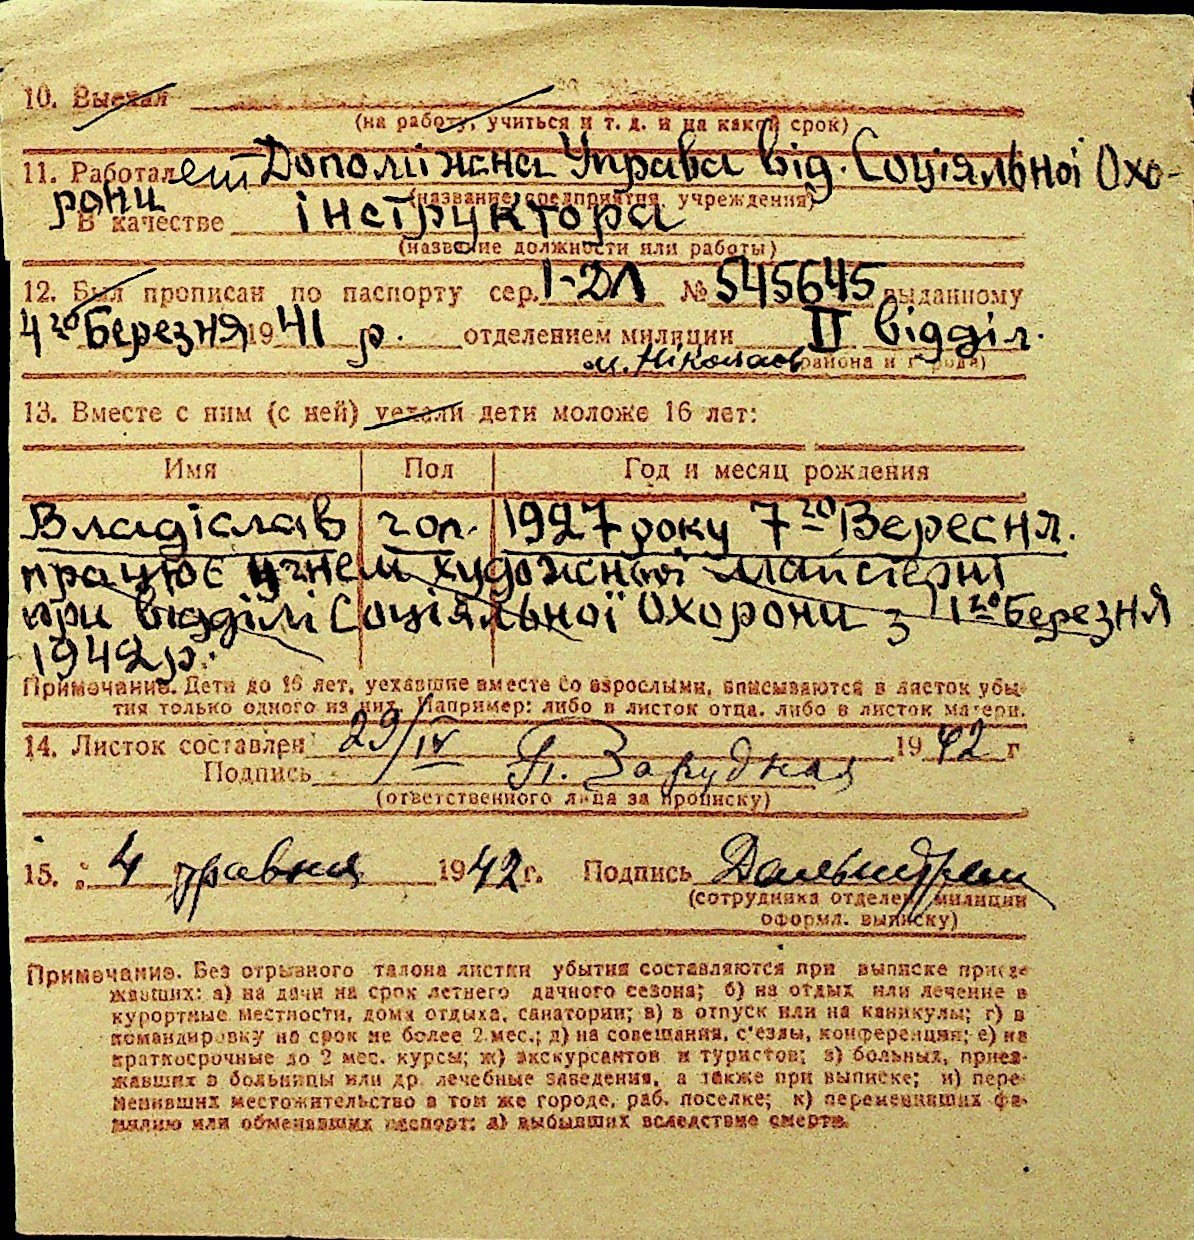 10. Выехал
(на работу, учиться и т. д. и на какой срок)
11. Работает Допоміжна Управа від. Соціяльної Охо-
рони (название предприятия, учреждения)
В качестве інструктора
(название должности или работы)
12. Был прописан по паспорту сер. I-ДЛ № 545645 выданному
4го Березня 1941 р. отделением милиции II відділ.
м. Ніколаєв (района и города)
13. Вместе с ним (с ней) уехали дети моложе 16 лет:
Имя Пол Год и месяц рождения
Владіслав чол. 1927 року 7го Вересня.
працює учнем художньої майстерні
при відділі Соціяльної Охорони з 1го Березня
1942 р.
Примечание. Дети до 16 лет, уехавшие вместе со взрослыми, вписываются в листок убы-
тия только одного из них. Например: либо в листок отца, либо в листок матери.
14. Листок составлен 29/IV 1942 г
Подпись П. Зарудная
(ответственного лица за прописку)
15. 4 травня 1942 г. Подпись
(сотрудника отделен. милиции
оформл. выписку)
Примечание. Без отрывного талона листки убытия составляются при выписке приез-
жавших: а) на дачи на срок летнего дачного сезона; б) на отдых или лечение в
курортные местности, дома отдыха, санатории; в) в отпуск или на каникулы; г) в
командировку на срок не более 2 мес.; д) на совещания, с'езды, конференции; е) на
краткосрочные до 2 мес. курсы; ж) экскурсантов и туристов; з) больных, приез-
жавших в больницы или др. лечебные заведения, а также при выписке; и) пере-
менивших местожительство в том же городе, раб. поселке; к) переменивших фа-
милию или обменявших паспорт; л) выбывших вследствие смерти.